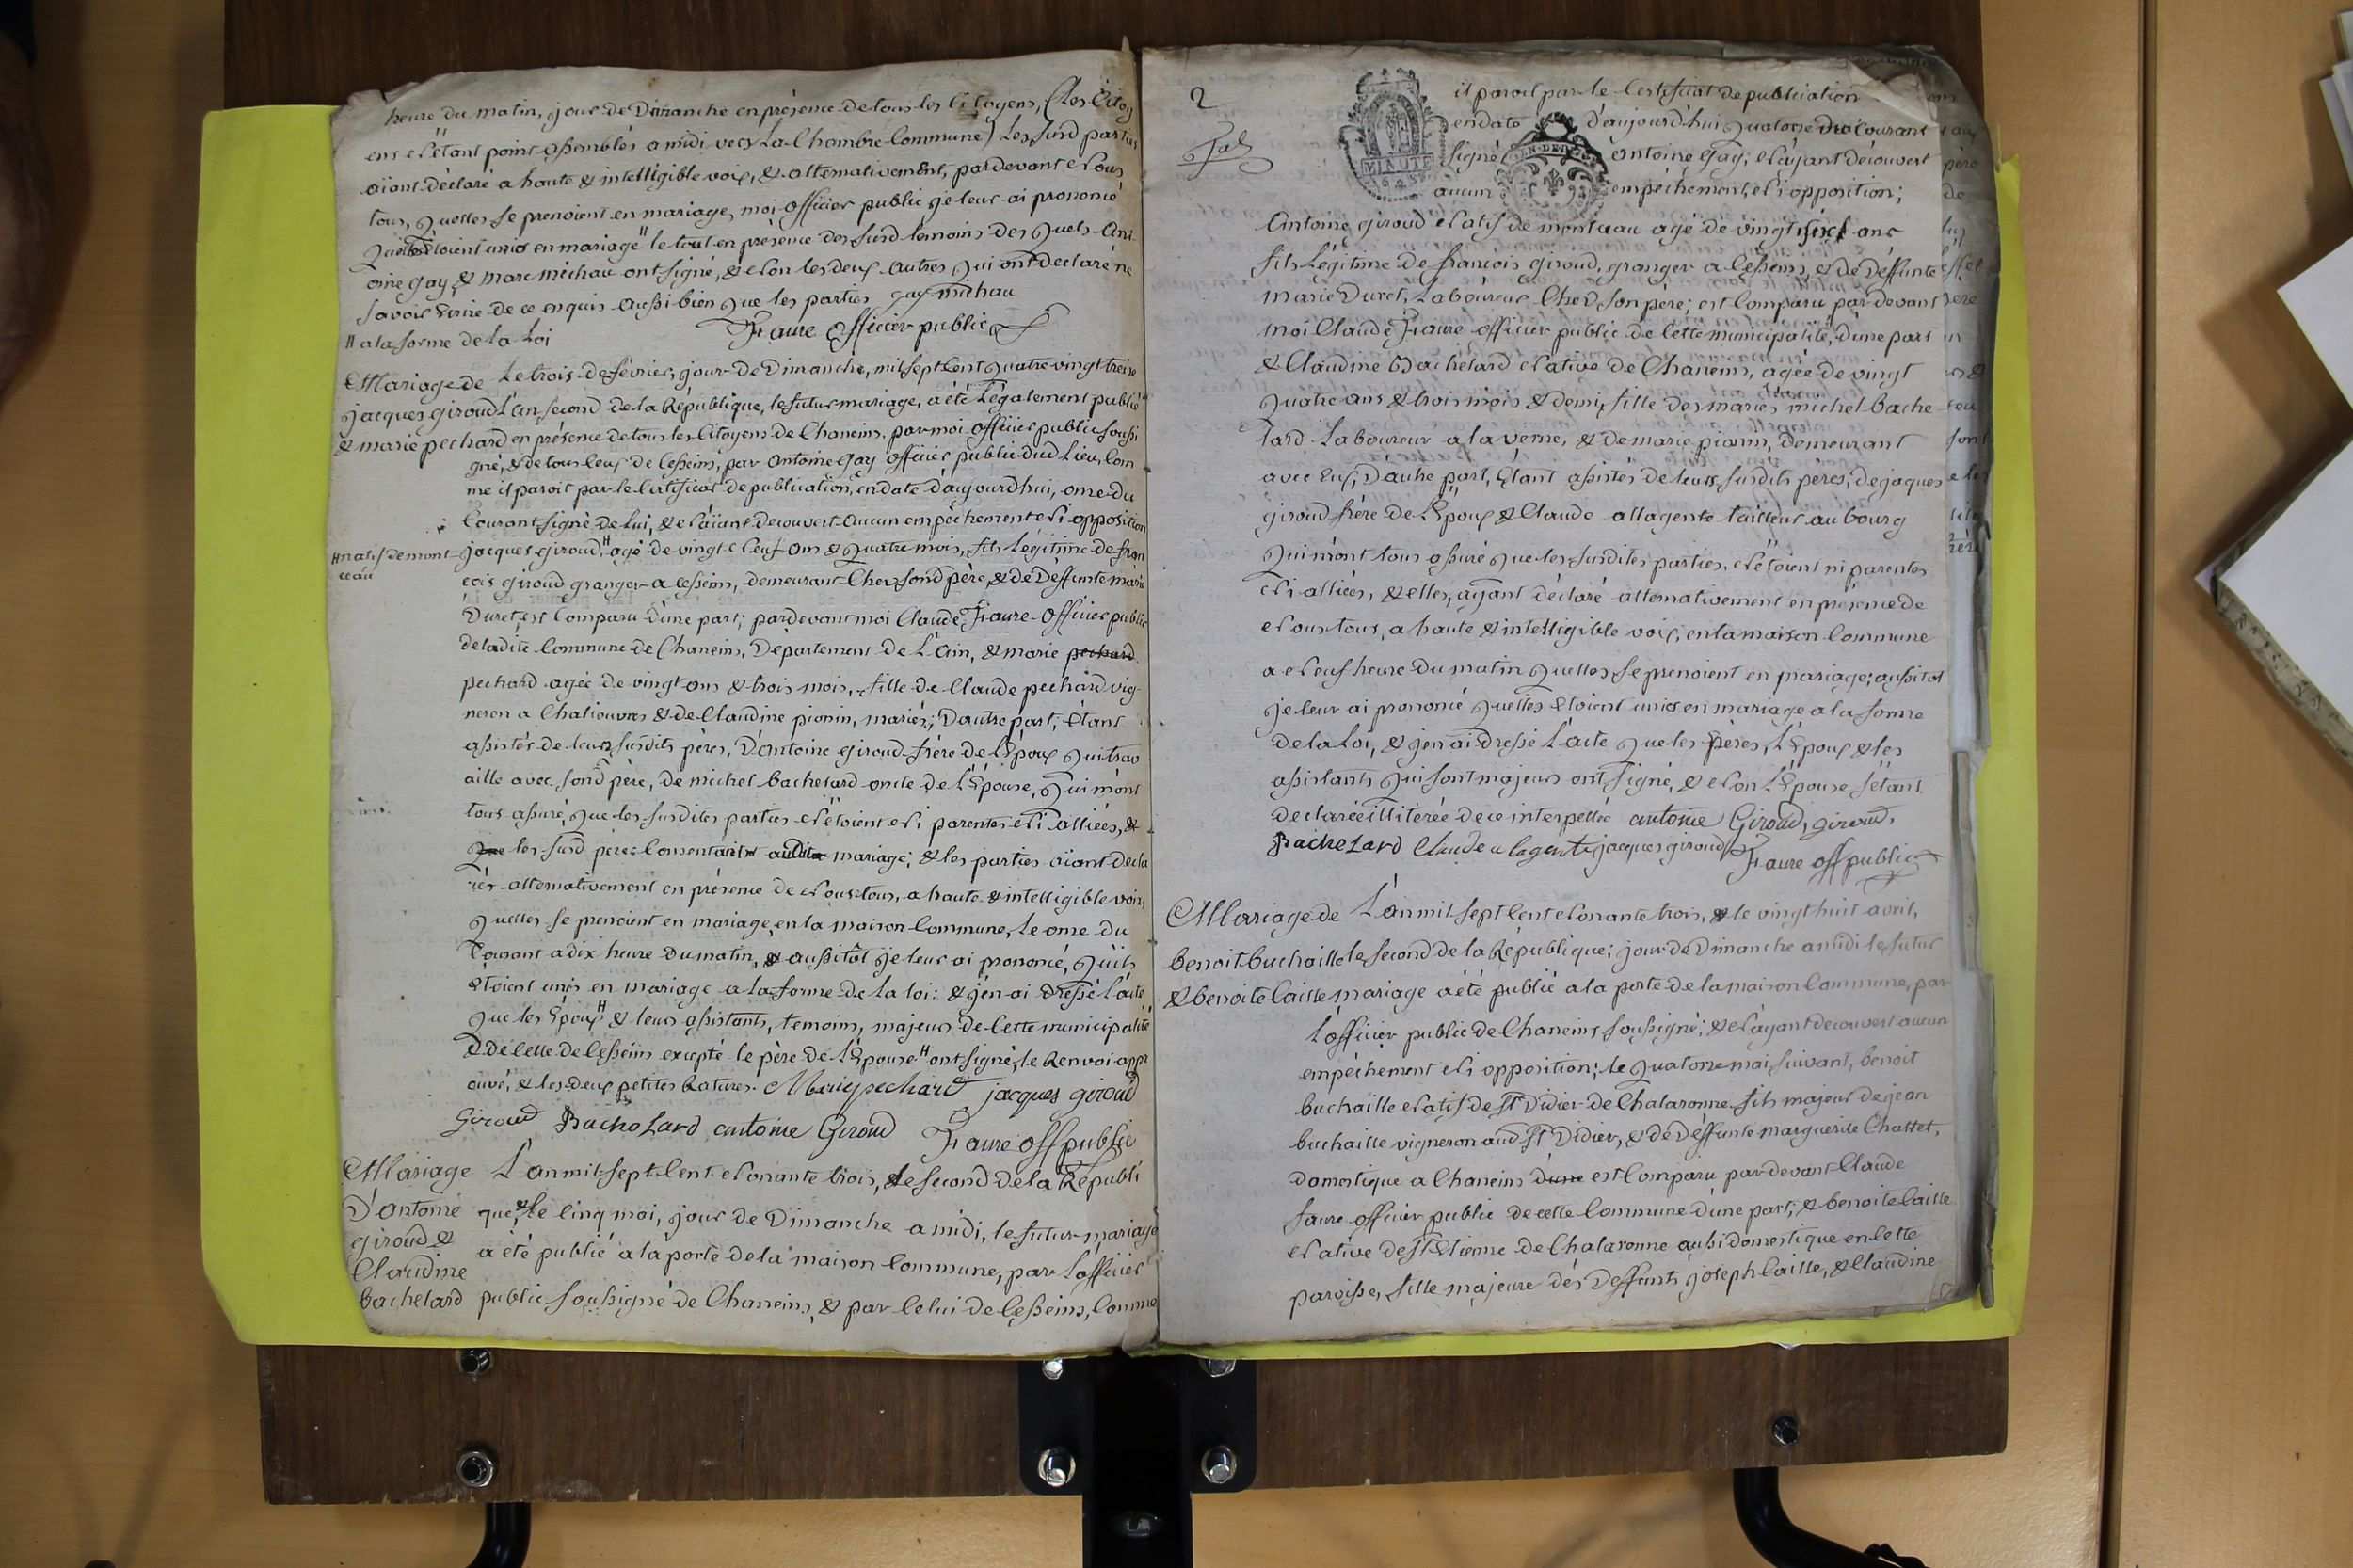 heure du matin, jour de Dimanche en présence de tous les Citoyens, (les Citoy
ens n'étant point assemblés a midi vers La Chambre Commune) Les susd parties
aïant déclaré a haute & intelligible voix, & alternativement, pardevant Nous
tous, quelles se prenoient en mariage, moi officier public je leur ai prononcé
étoient unis en mariage" le tout en présence des susd témoins des quels Ant
oine gay, & marc michau ont signé, & Non les deux autres qui ont declaré ne
savoir Ecrire de ce enquis aussi bien que les parties gay michau
" a la forme de la Loi
Faure Officier public
Mariage de
jacques giroud
& marie pechard
Le trois de février, jour de Dimanche, mil sept Cent quatre vingt treise
L'an second de la République, le futur mariage, a été Légalement publié
en présence de tous les Citoyens de Chaneins, par moi officier public soussi
gné, & de tous ceux de Cesseins, par Antoine Gay officier public dud Lieu, Com
me il paroit par le Certificat de publication, en date d'aujourd'hui, onze du
Courant signé de lui, & N'aïant decouvert aucun empêchement Ni opposition
H natif de mont
ceau
jacques giroud,H agé de vingt Neuf ans & quatre mois, fils Légitime de fran
cois giroud granger a cesseins, demeurant Chez sond père & de Deffunte marie
Duret, est Comparu d'une part; pardevant moi Claude Faure Officier public
de ladite Commune de Chaneins, Département de L'Ain, & marie pechard
pechard agée de vingt ans & trois mois, fille de Claude pechard vig-
neron a Chatiouvres & de Claudine pionin, mariés; D'autre part; étant
assistés de leurs susdits pères, D'Antoine giroud frère de L'Epoux qui trav
aille avec sond père, de michel bachelard oncle de L'Epouse, qui m'ont
tous assuré, que les susdites parties N'étoient Ni parentes Ni alliées, &
que les susd pères Consentant audit mariage; & les parties aïant decla
rés alternativement en présence de Nous tous, a haute & intelligible voix,
quelles se prenoient en mariage, en la maison Commune, Le onze du
Courant a dix heure du matin, & aussitôt je leur ai prononcé, qu'ils
étoient unis en mariage a la forme de la loi: & j'en ai dressé l'acte
que les EpouxH & leurs assistants, temoins, majeurs de Cette municipalité
& de Celle de Cesseins excepté le père de L'EpouseH ont signé, le Renvoi appr
ouvé, & les deux petites Ratures. Marie pechard jacques giroud
Giroud Bachelard antoine Giroud Faure off public
Mariage
D'antoine
giroud &
Claudine
bachelard
L'an mil sept Cent Nonante trois, & le second de la Républi
que, & le Cinq mai, jour de Dimanche a midi, le futur mariage
a été publié a la porte de la maison Commune, par L'officier
public soussigné de Chaneins, & par Celui de Cesseins, Comme
2
il paroit par le Certificat de publication
en date d'aujourd'hui quatorze Courant
signé antoine Gay; N'ayant découvert
aucun empêchement, Ni opposition;
MINUTE
Antoine giroud Natif de montceau agé de vingt six ans
fils Légitime de francois giroud, granger a Cesseins, & de Deffunte
marie Duret, Laboureur Chez son père; est Comparu par devant
moi Claude Faure officier public de Cette municipalité, d'une part
& Claudine Bachelard Native de Chaneins, agée de vingt
quatre ans & trois mois & demi, fille des mariés michel bache
lard Laboureur a la verne, & de marie pionin, demeurant
avec Eux; D'autre part, Etant assistés de leurs susdits pères; de jaques
giroud frère de L'Epoux & Claude allagente tailleur au bourg
qui m'ont tous assuré que les susdites parties N'étoient ni parentes
Ni alliées, & elles, ayant déclaré alternativement en présence de
Nous tous, a haute & intelligible voix, en la maison Commune
a Neuf heure du matin quelles se prenoient en mariage; aussitot
je leur ai prononcé quelles étoient unies en mariage a la forme
de la Loi, & j'en ai dressé L'acte que les pères, L'Epoux & les
assistants qui sont majeurs ont signé, & Non L'Epouse s'étant
declarée illiterée de ce interpellée antoine Giroud, giroud,
Bachelard Claude alagente jacques giroud Faure off public
Mariage de
benoit buchaille
& benoite Caille
L'an mil sept Cent Nonante trois, & le vingt huit avril,
le second de la République; jour de Dimanche a midi le futur
mariage a été publié a la porte de la maison Commune, par
L'officier public de Chaneins soussigné; & N'ayant decouvert aucun
empêchement Ni opposition; le quatorze mai suivant, benoit
buchaille Natif de St Didier de Chalaronne fils majeur de jean
buchaille vigneron aud St Didier, & de Deffunte marguerite Chattet,
domestique a Chaneins d'une est Comparu pardevant Claude
faure officier public de cette Commune d'une part; & benoite Caille
Native de St Etienne de Chalaronne aussi domestique en Cette
paroisse, fille majeure des Deffunts joseph Caille, & Claudine